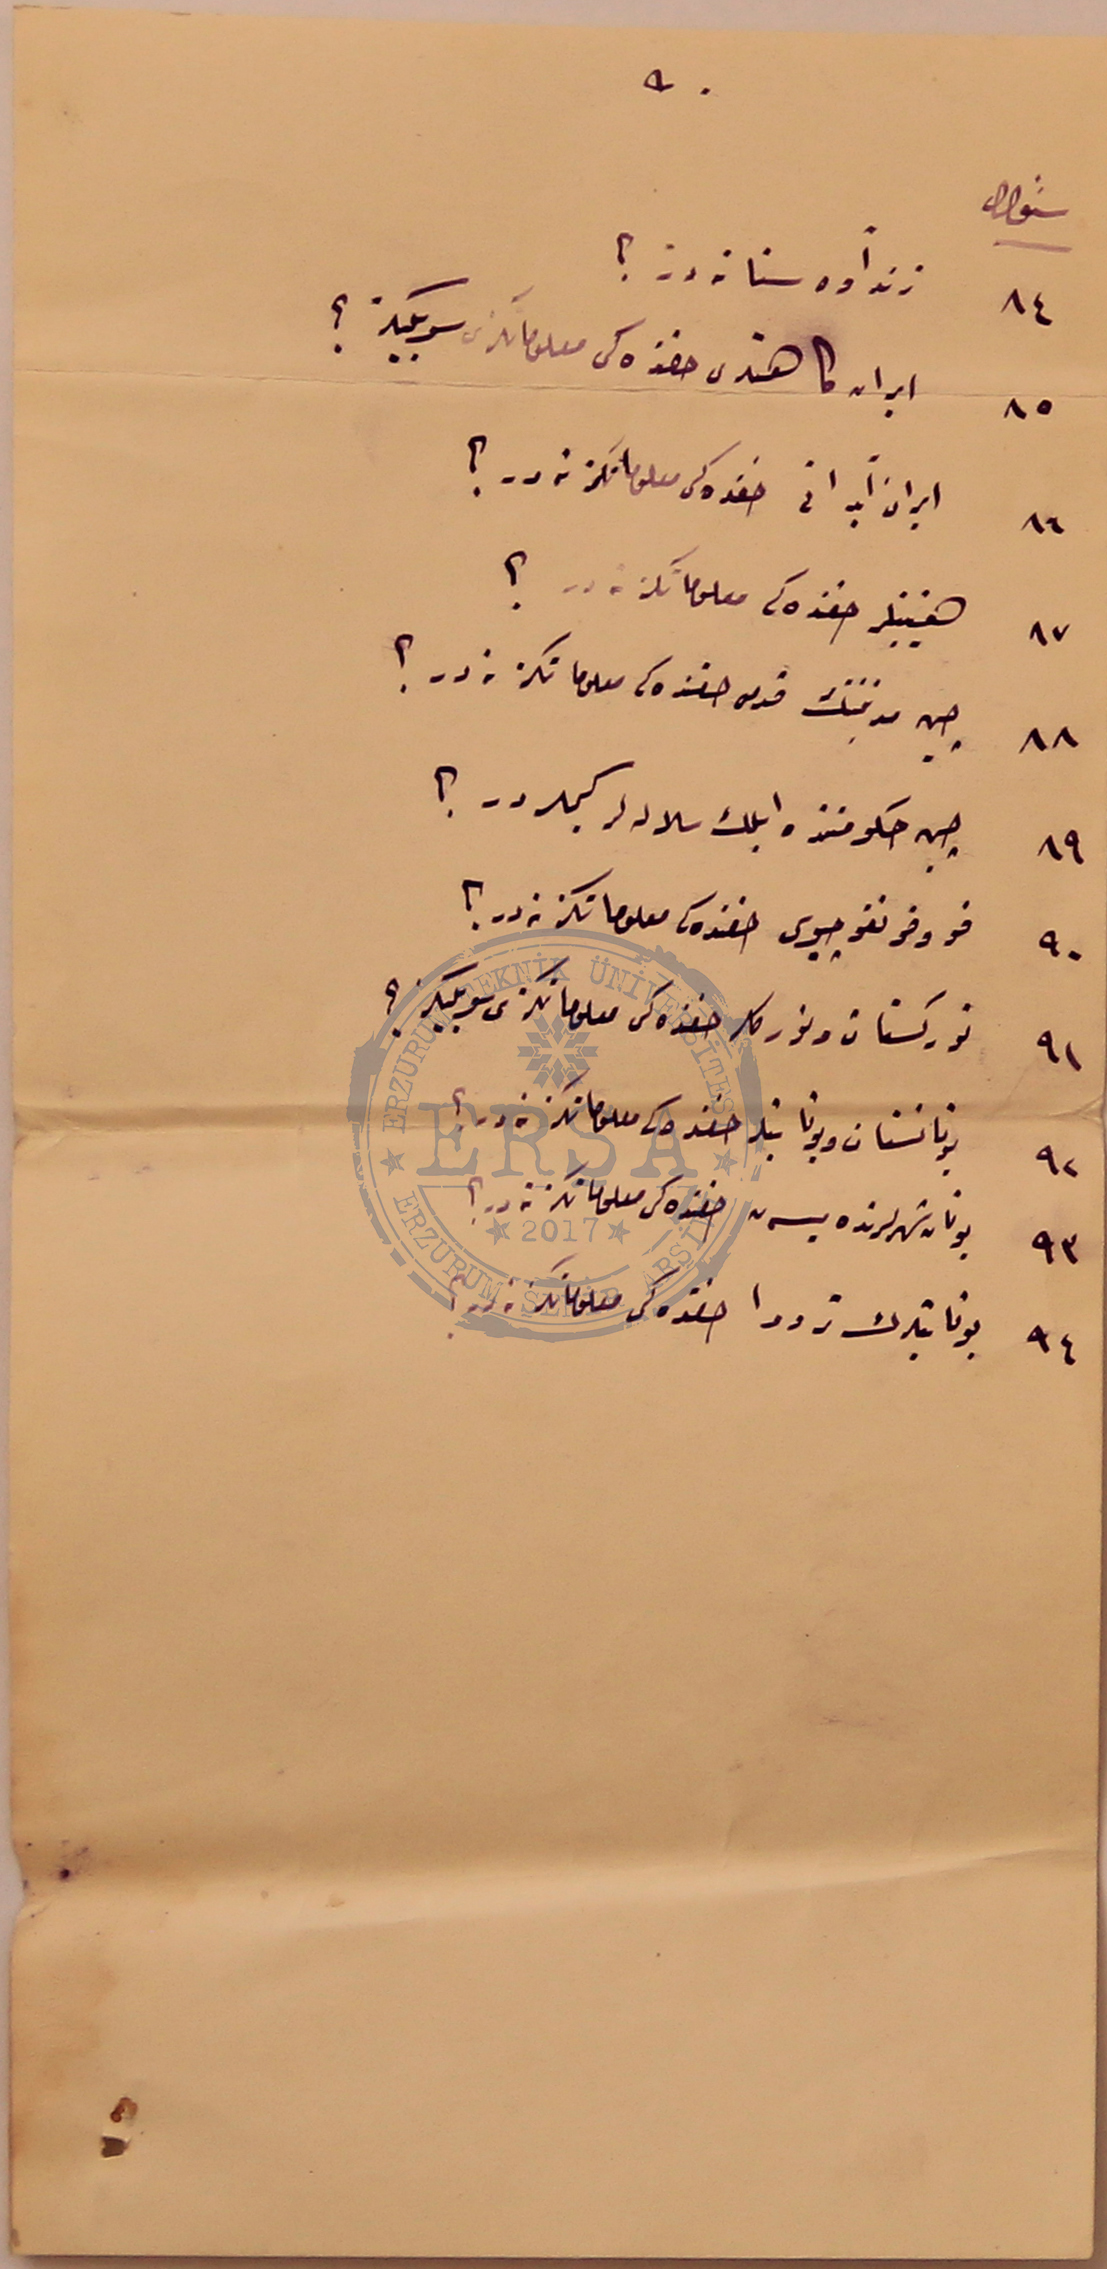 ٩٠
سؤال
٨٤ زند آوه ستا نه در ؟
٨٥ ایران كاهنلری حقنده كی معلوماتكزی سویلیكز ؟
٨٦ ایران حقنده كی معلوماتكز نه در ؟
٨٧ حقنده كی معلوماتكز نه در ؟
٨٨ چین مدنیتنك قدمی حقنده كی معلوماتكز نه در ؟
٨٩ چین حكومتنده ایلك سلاله لر كیملر در ؟
٩٠ حقنده كی معلوماتكز نه در ؟
٩١ توركستان و توركلر حقنده كی معلوماتكزی سویلیكز ؟
٩٢ یونانستان و یونانیلر حقنده كی معلوماتكز نه در ؟
٩٣ یونان شهرلرنده حقنده كی معلوماتكز نه در ؟
٩٤ یونانیلرك ترووا حقنده كی معلوماتكز نه در ؟
ERZURUM TEKNİK ÜNİVERSİTESİ
ERSA
2017
ERZURUM ŞEHİR ARŞİVİ